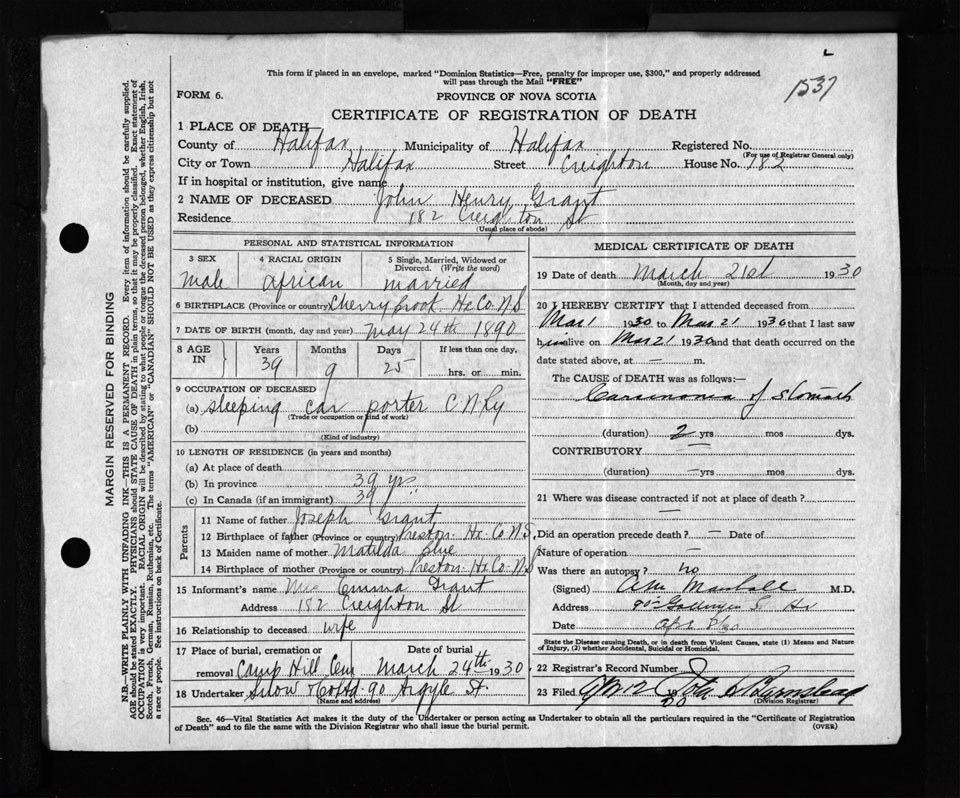 1537
This form if placed in an envelope, marked "Dominion Statistics—Free, penalty for improper use, $300," and properly addressed
will pass through the Mail "FREE"
FORM 6.
PROVINCE OF NOVA SCOTIA
CERTIFICATE OF REGISTRATION OF DEATH
1 PLACE OF DEATH
County of Halifax Municipality of Halifax Registered No.
(For use of Registrar General only)
City or Town Halifax Street Creighton House No. 182
If in hospital or institution, give name
2 NAME OF DECEASED John Henry Grant
Residence 182 Creighton St
(Usual place of abode)
PERSONAL AND STATISTICAL INFORMATION
3 SEX 4 RACIAL ORIGIN 5 Single, Married, Widowed or
Divorced. (Write the word)
male african married
6 BIRTHPLACE (Province or country) Cherry brook Hx Co. N.S
7 DATE OF BIRTH (month, day and year) May 24th 1890
8 AGE IN Years Months Days If less than one day.
39 9 25 hrs. or min.
9 OCCUPATION OF DECEASED
(a) sleeping car porter C.N.Ry
(Trade or occupation or kind of work)
(b)
(Kind of industry)
10 LENGTH OF RESIDENCE (in years and months)
(a) At place of death
(b) In province 39 yrs
(c) In Canada (if an immigrant) 39 "
Parents
11 Name of father Joseph Grant
12 Birthplace of father (Province or country) Preston Hx Co N.S.
13 Maiden name of mother Matilda
14 Birthplace of mother (Province or country) Preston Hx Co. N.S
15 Informant's name Mrs Emma Grant
Address 182 Creighton St
16 Relationship to deceased wife
17 Place of burial, cremation or Date of burial
removal Camp Hill Cem March 24th 1930
18 Undertaker Snow & Co Ltd 90 Argyle St.
(Name and address)
MEDICAL CERTIFICATE OF DEATH
19 Date of death March 21st 1930
(Month, day and year)
20 I HEREBY CERTIFY that I attended deceased from
Mar 1 1930 to Mar 21 1930 that I last saw
him alive on Mar 21 1930 and that death occurred on the
date stated above, at — m.
The CAUSE of DEATH was as follows:—
Carsinoma of Stomach
(duration) 2 yrs mos dys.
CONTRIBUTORY —
(duration) — yrs mos dys.
21 Where was disease contracted if not at place of death?
—
Did an operation precede death? — Date of
Nature of operation —
Was there an autopsy? no
(Signed) M.D.
Address
Date
State the Disease causing Death, or in death from Violent Causes, state (1) Means and Nature
of Injury, (2) whether Accidental, Suicidal or Homicidal.
22 Registrar's Record Number
23 Filed
(Division Registrar)
Sec. 46—Vital Statistics Act makes it the duty of the Undertaker or person acting as Undertaker to obtain all the particulars required in the "Certificate of Registration
of Death" and to file the same with the Division Registrar who shall issue the burial permit.
(OVER)
MARGIN RESERVED FOR BINDING
N.B.—WRITE PLAINLY WITH UNFADING INK—THIS IS A PERMANENT RECORD. Every item of information should be carefully supplied.
AGE should be stated EXACTLY. PHYSICIANS should STATE CAUSE OF DEATH in plain terms, so that it may be properly classified. Exact statement of
OCCUPATION is very important. RACIAL ORIGIN will be described by stating to what people or tongue the deceased person belonged, whether English, Irish,
Scotch, French, German, Russian, Ruthenian, etc. The terms "AMERICAN" or "CANADIAN" SHOULD NOT BE USED as they express citizenship but not
a race or people. See instructions on back of Certificate.